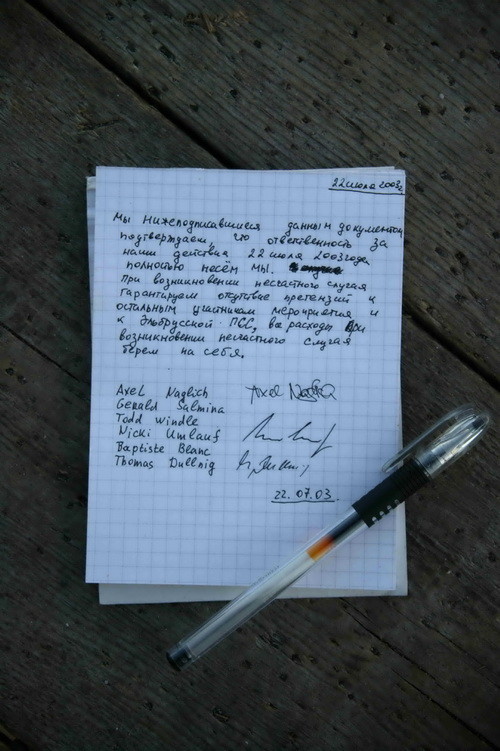 22 июля 2003г.
Мы нижеподписавшиеся данным документом
подтверждаем, что ответственность за
наши действия 22 июля 2003 года
полностью несём мы.
При возникновении несчастного случая
гарантируем отсутствие претензий к
остальным участникам мероприятия и
к Эльбрусской ПСС, все расходы при
возникновении несчастного случая
берем на себя.
Axel Naglich Axel Naglich
Gerald Salmina
Todd Windle
Nicki Umlauf
Baptiste Blanc
Thomas Dullnig
22.07.03.